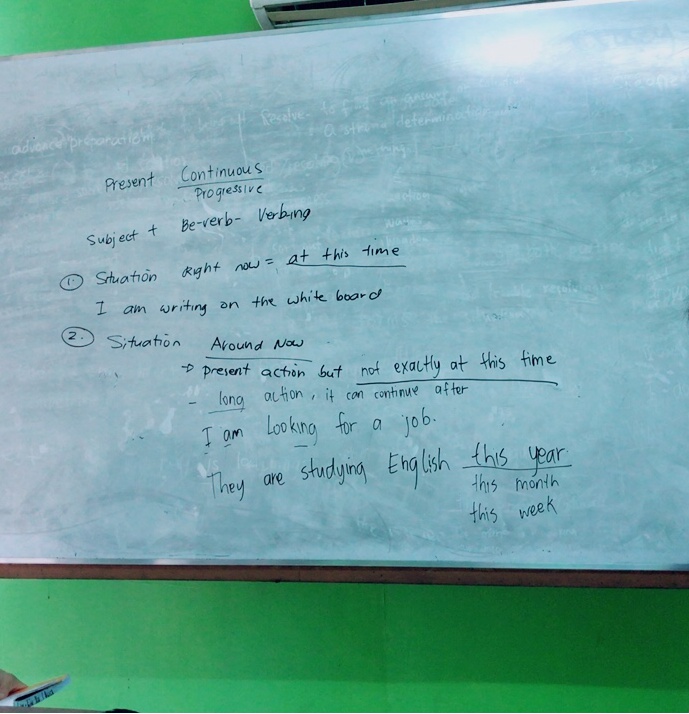 advance preparation
Resolve- to f
a strong determination
Present Continuous
Progressive
Subject + Be-verb- Verb-ing
1. Situation Right now = at this time
I am writing on the white board
2. Situation Around Now
→ present action but not exactly at this time
- long action, it can continue after
I am Looking for a job.
They are studying English this year.
this month
this week